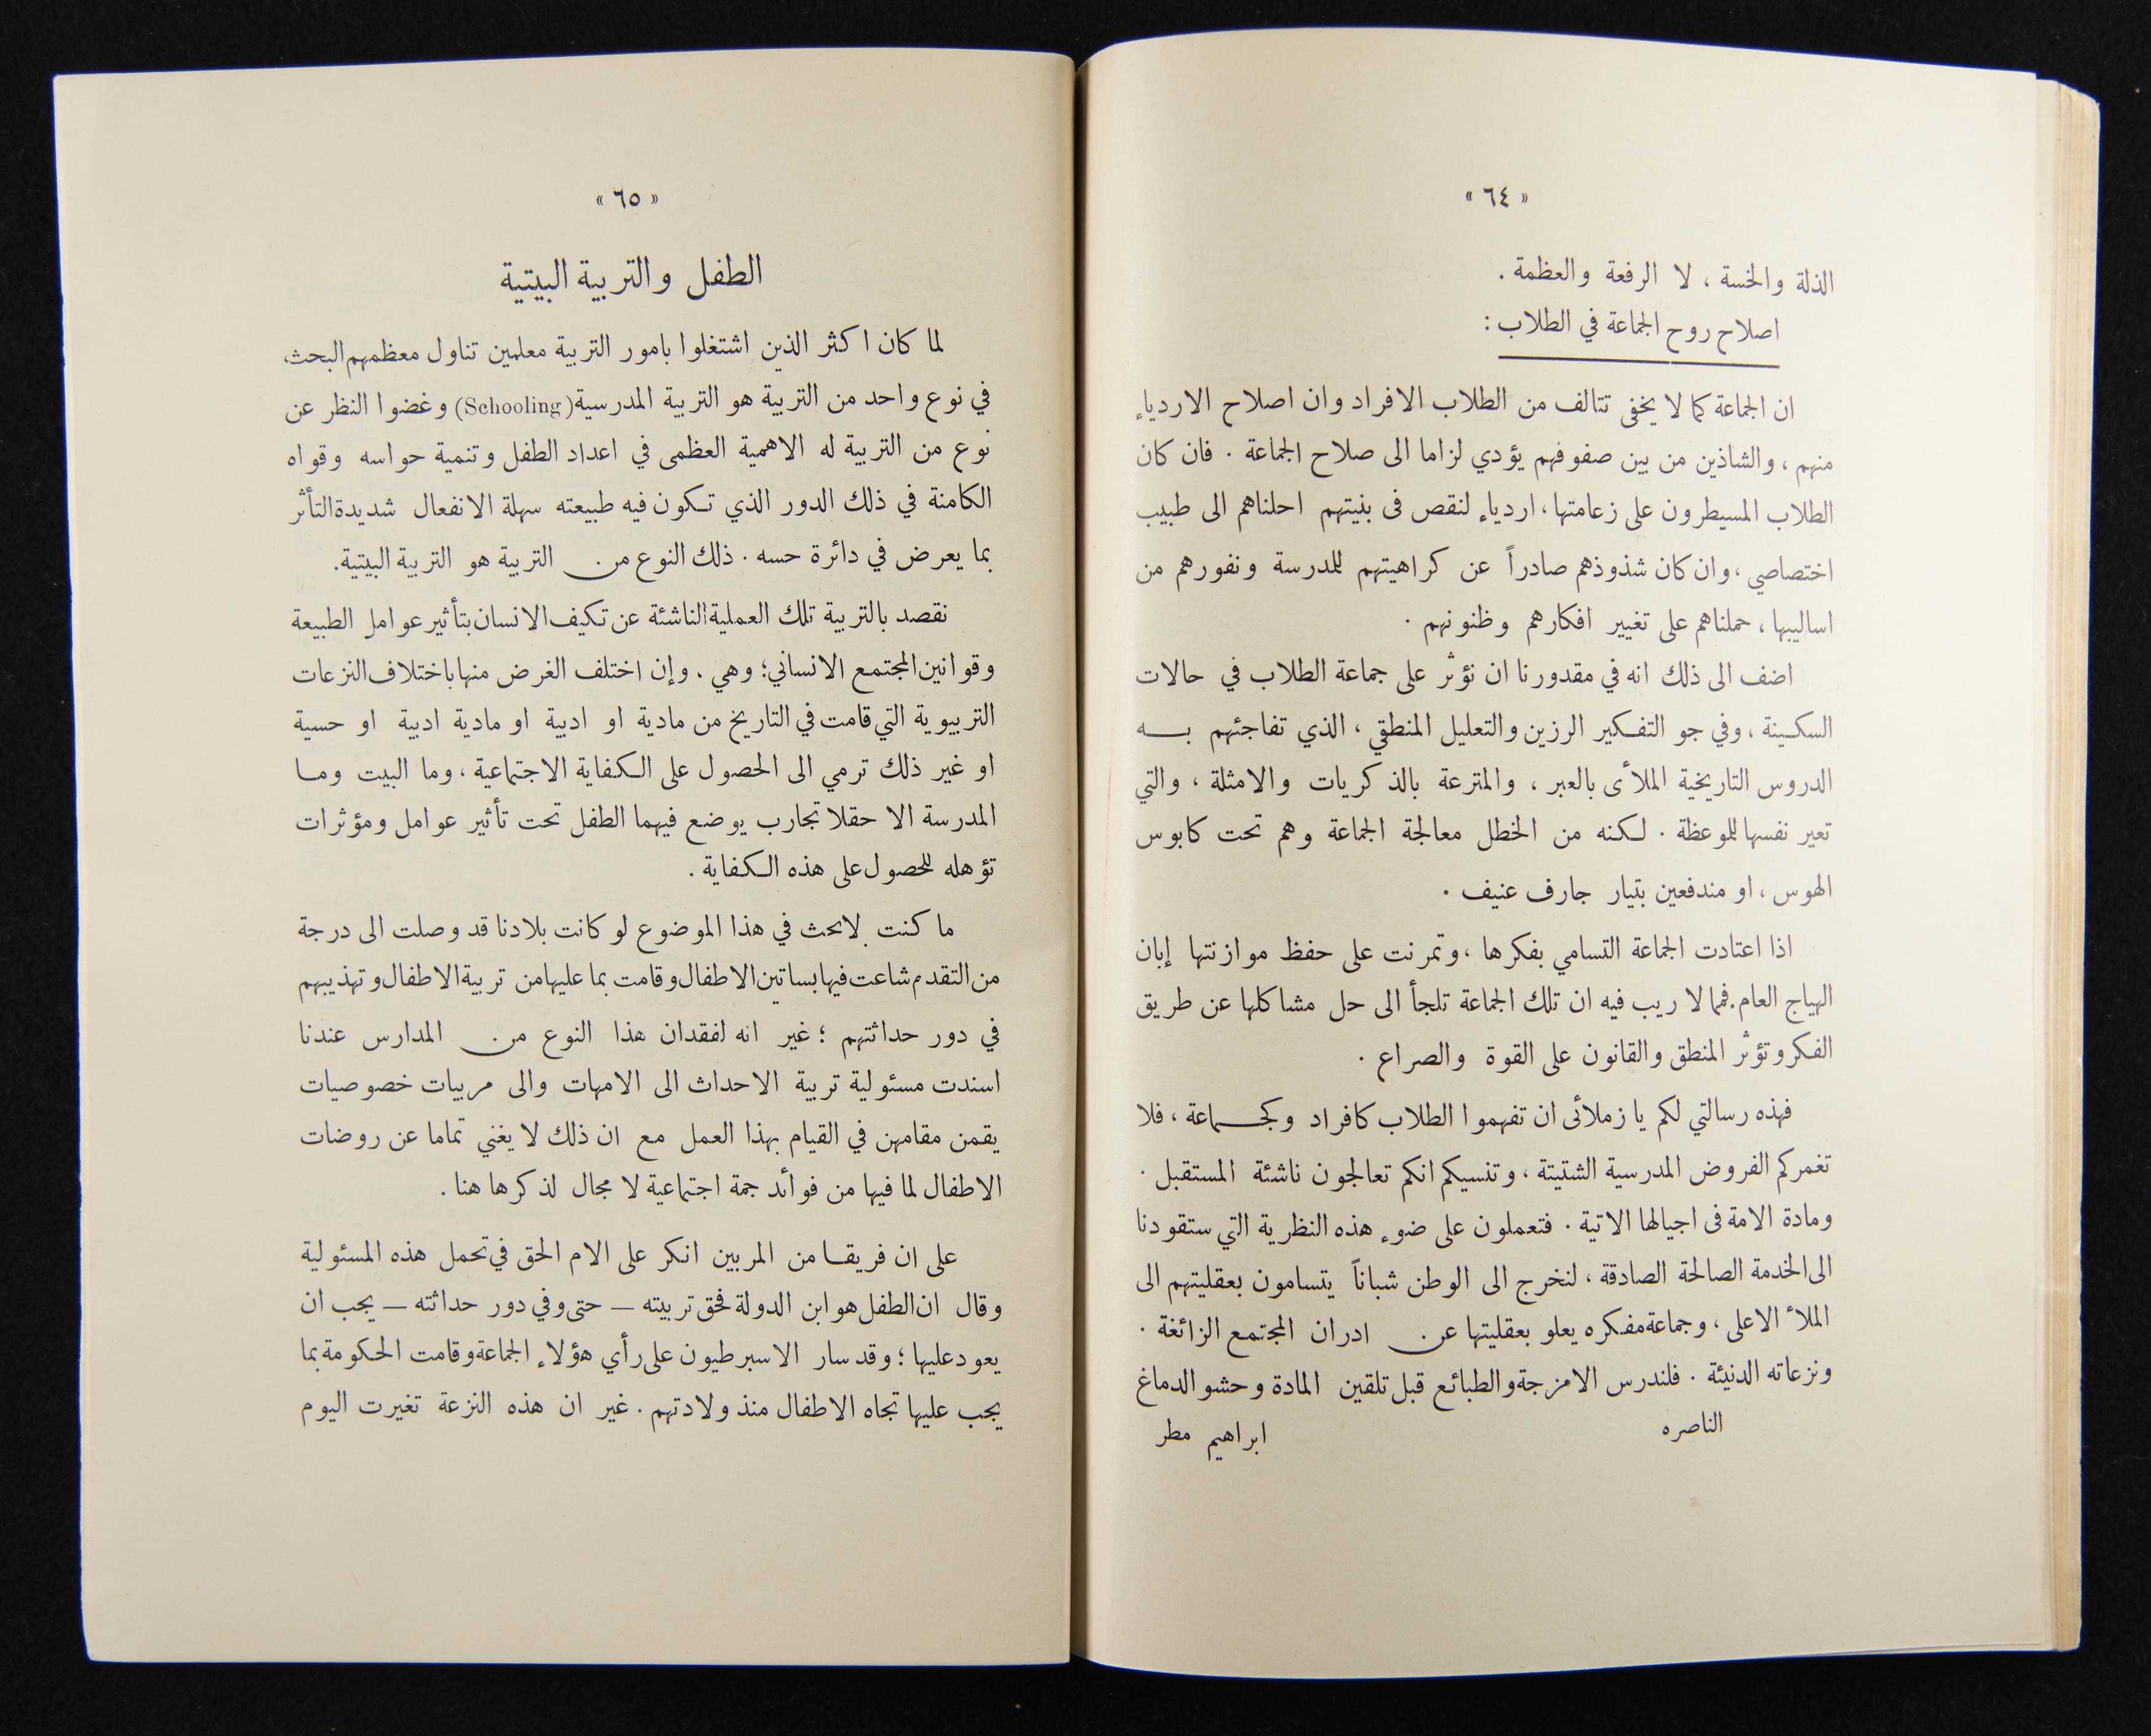 « ٦٤ »
الذلة والخسة ، لا الرفعة والعظمة .
اصلاح روح الجماعة في الطلاب :
ان الجماعة كما لا يخفى تتالف من الطلاب الافراد وان اصلاح الاردياء
منهم ، والشاذين من بين صفوفهم يؤدي لزاما الى صلاح الجماعة . فان كان
الطلاب المسيطرون على زعامتها ، اردياء لنقص فى بنيتهم احلناهم الى طبيب
اختصاصي ، وان كان شذوذهم صادراً عن كراهيتهم للمدرسة ونفورهم من
اساليبها ، حملناهم على تغيير افكارهم وظنونهم .
اضف الى ذلك انه في مقدورنا ان نؤثر على جماعة الطلاب في حالات
السكينة ، وفي جو التفكير الرزين والتعليل المنطقي ، الذي تفاجئهم به
الدروس التاريخية الملأى بالعبر ، والمترعة بالذكريات والامثلة ، والتي
تعير نفسها للموعظة . لكنه من الخطل معالجة الجماعة وهم تحت كابوس
الهوس ، او مندفعين بتيار جارف عنيف .
اذا اعتادت الجماعة التسامي بفكرها ، وتمرنت على حفظ موازنتها إبان
الهياج العام . فمما لا ريب فيه ان تلك الجماعة تلجأ الى حل مشاكلها عن طريق
الفكر وتؤثر المنطق والقانون على القوة والصراع .
فهذه رسالتي لكم يا زملائى ان تفهموا الطلاب كافراد وكجماعة ، فلا
تغمركم الفروض المدرسية الشتيتة ، وتنسيكم انكم تعالجون ناشئة المستقبل .
ومادة الامة فى اجيالها الاتية . فتعملون على ضوء هذه النظرية التي ستقودنا
الى الخدمة الصالحة الصادقة ، لنخرج الى الوطن شباناً يتسامون بعقليتهم الى
الملأ الاعلى ، وجماعة مفكره يعلو بعقليتها عن ادران المجتمع الزائغة .
ونزعاته الدنيئة . فلندرس الامزجة والطبائع قبل تلقين المادة وحشو الدماغ
الناصره ابراهيم مطر
« ٦٥ »
الطفل والتربية البيتية
لما كان اكثر الذين اشتغلوا بامور التربية معلمين تناول معظمهم البحث
في نوع واحد من التربية هو التربية المدرسية (Schooling) وغضوا النظر عن
نوع من التربية له الاهمية العظمى في اعداد الطفل وتنمية حواسه وقواه
الكامنة في ذلك الدور الذي تكون فيه طبيعته سهلة الانفعال شديدة التأثر
بما يعرض في دائرة حسه . ذلك النوع من التربية هو التربية البيتية .
نقصد بالتربية تلك العملية الناشئة عن تكيف الانسان بتأثير عوامل الطبيعة
وقوانين المجتمع الانساني ؛ وهي . وإن اختلف الغرض منها باختلاف النزعات
التربيوية التي قامت في التاريخ من مادية او ادبية او مادية ادبية او حسية
او غير ذلك ترمي الى الحصول على الكفاية الاجتماعية ، وما البيت وما
المدرسة الا حقلا تجارب يوضع فيهما الطفل تحت تأثير عوامل ومؤثرات
تؤهله للحصول على هذه الكفاية .
ما كنت لابحث في هذا الموضوع لو كانت بلادنا قد وصلت الى درجة
من التقدم شاعت فيها بساتين الاطفال وقامت بما عليها من تربية الاطفال وتهذيبهم
في دور حداثتهم ؛ غير انه لفقدان هذا النوع من المدارس عندنا
اسندت مسئولية تربية الاحداث الى الامهات والى مربيات خصوصيات
يقمن مقامهن في القيام بهذا العمل مع ان ذلك لا يغني تماما عن روضات
الاطفال لما فيها من فوائد جمة اجتماعية لا مجال لذكرها هنا .
على ان فريقا من المربين انكر على الام الحق في تحمل هذه المسئولية
وقال ان الطفل هو ابن الدولة فحق تربيته — حتى وفي دور حداثته — يجب ان
يعود عليها ؛ وقد سار الاسبرطيون على رأي هؤلاء الجماعة وقامت الحكومة بما
يجب عليها تجاه الاطفال منذ ولادتهم . غير ان هذه النزعة تغيرت اليوم